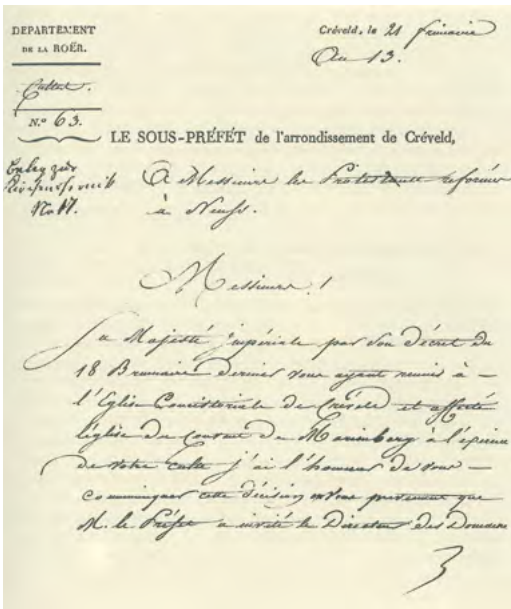 DEPARTEMENT
DE LA ROËR.
Cultes.
N.º 63.
Créveld, le 21 frimaire
An 13.
LE SOUS-PRÉFET de l'arrondissement de Créveld,
Beleg zur
Kirchenchronik
No 17.
A Messieurs les Protestants reformés
à Neuss.
Messieurs!
Sa Majesté impériale par son décret du
18 Brumaire dernier vous ayant reunis à –
l'Eglise Consistoriale de Créveld et affecté
l'église du Couvent de Marienberg à l'éxercice
de votre culte j'ai l'honneur de vous –
communiquer cette décision en vous prevenant que
M. le Préfet a invité le Directeur des Domaines